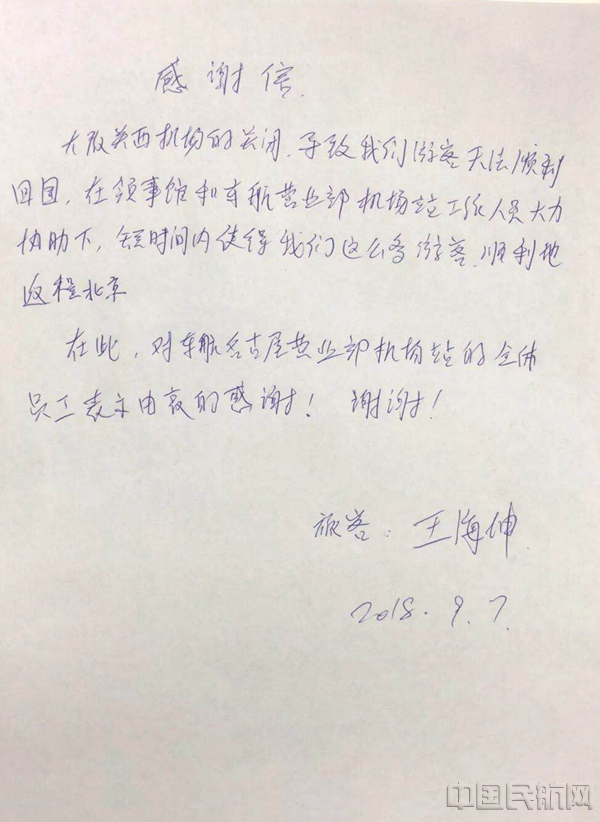 感谢信
大阪关西机场的关闭,导致我们游客无法顺利
回国,在领事馆和东航营业部机场站工作人员大力
协助下,短时间内使得我们这么多游客,顺利地
返程北京
在此,对东航名古屋营业部机场站的全体
员工表示由衷的感谢! 谢谢!
旅客:王海伸
2018.9.7.
中国民航网